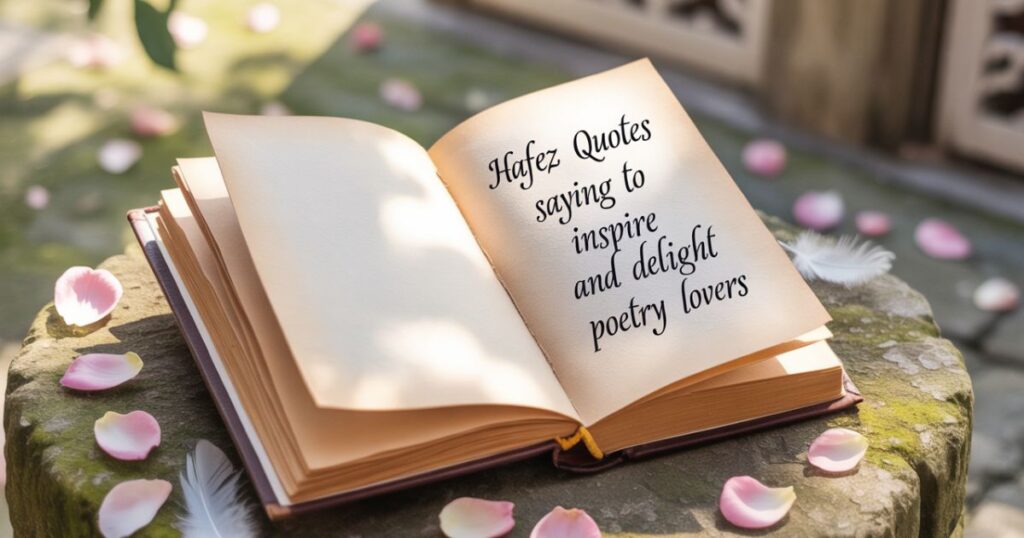 Hafez Quotes
saying to
inspire
and delight
poetry lovers